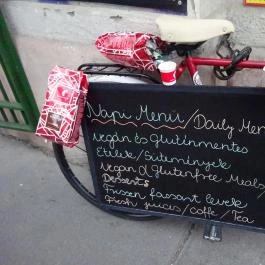 Napi Menü / Daily Men
Vegán és Gluténmentes
Ételek / Sütemények
Vegan & Glutenfree Meals/
Desserts
Frissen facsart levek
Fresh juices / coffe / Tea